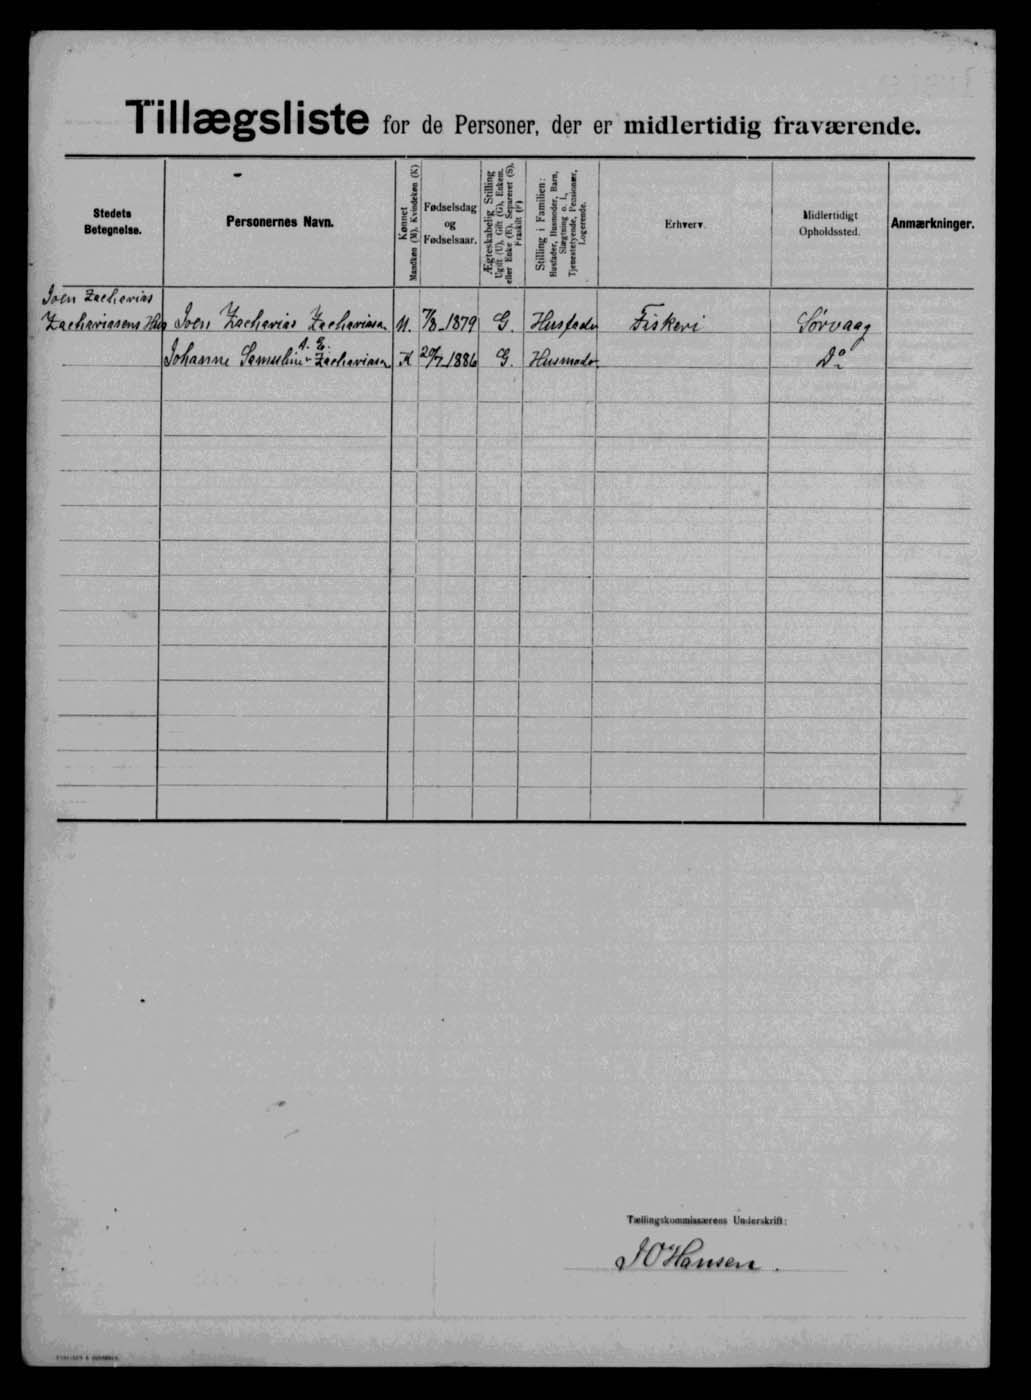 Tillægsliste for de Personer, der er midlertidig fraværende.
Stedets
Betegnelse.
Personernes Navn.
Kønnet
Mandkøn (M), Kvindekøn (K)
Fødselsdag
og
Fødselsaar.
Ægteskabelig Stilling
Ugift (U), Gift (G), Enkem.
eller Enke (E), Separeret (S),
Fraskilt (F)
Stilling i Familien:
Husfader, Husmoder, Barn,
Slægtning o. l.,
Tjenestetyende, Pensionær,
Logerende.
Erhverv.
Midlertidigt
Opholdssted.
Anmærkninger.
Joen Zacharias
Zachariasens Hus Joen Zacharias Zachariasen M. 7/8 1879 G. Husfader Fiskeri Sørvaag
Johanne Samueline Zachariasen K 20/7 1886 G. Husmoder Do
Tællingskommissærens Underskrift:
J O Hansen.